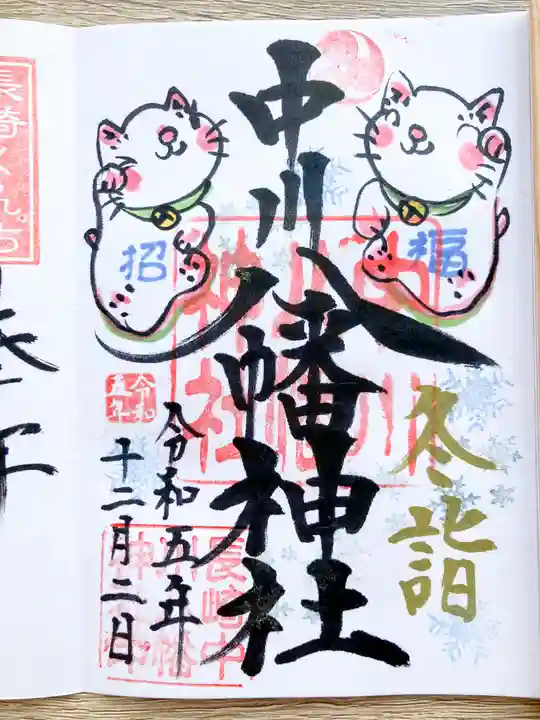 中川八幡神社
冬詣
福
招
令和五年
十二月二日
令和
五年
中川
八幡
神社
長崎中
川八幡
神社
長崎くんち